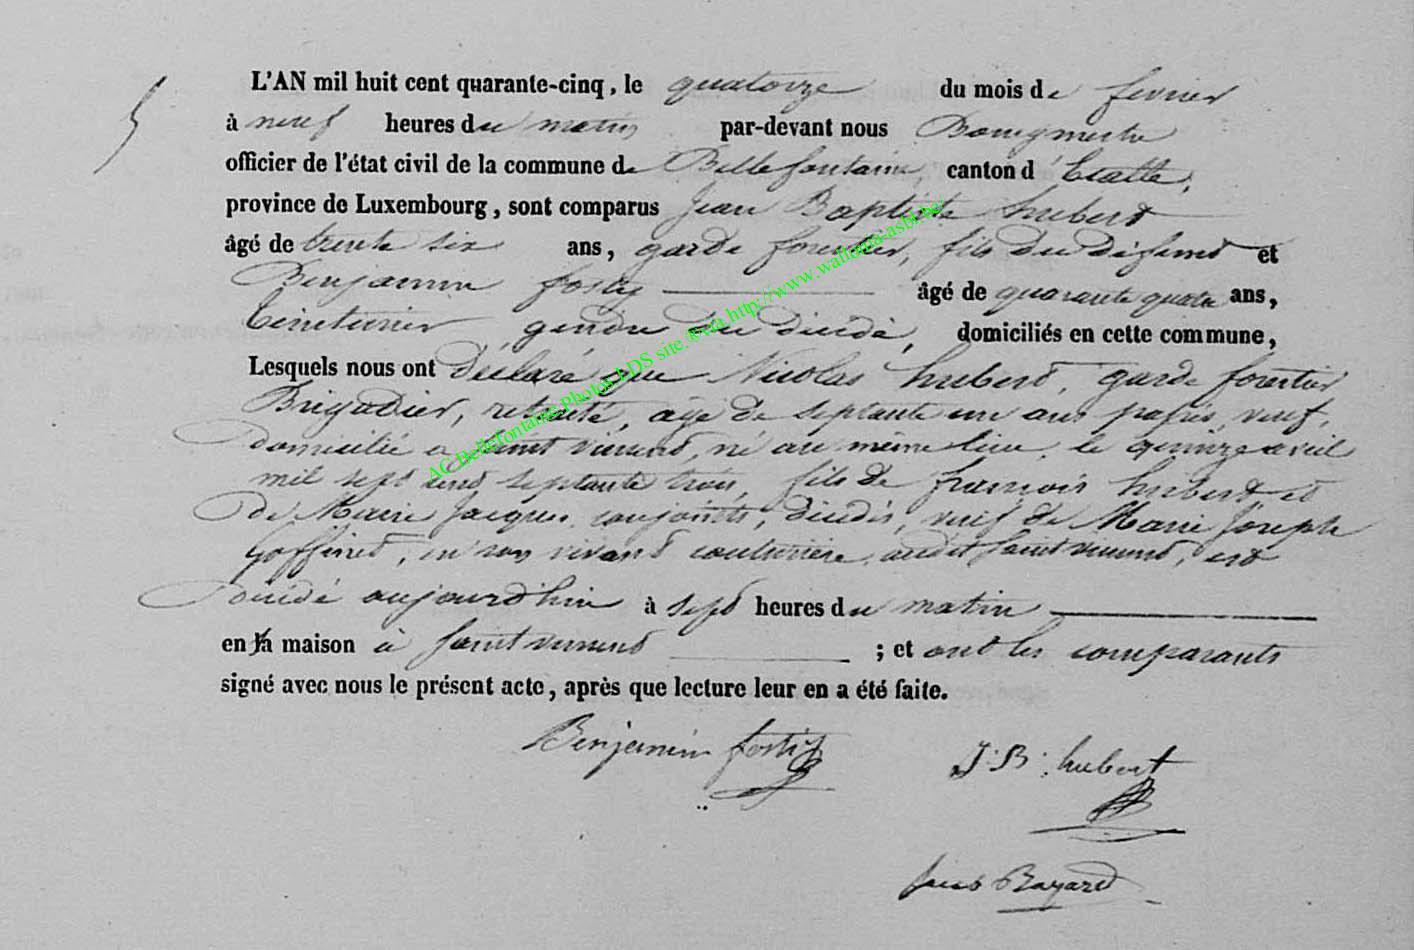 5
L'AN mil huit cent quarante-cinq, le quatorze du mois de fevrier
à neuf heures du matin par-devant nous Bourgmestre
officier de l'état civil de la commune de Bellefontaine, canton d'Etalle,
province de Luxembourg, sont comparus Jean Baptiste hubert
âgé de trente six ans, garde forestier, fils du défunt et
Benjamin fosty âgé de quarante quatre ans,
teinturier, gendre du décédé, domiciliés en cette commune,
Lesquels nous ont déclaré que Nicolas hubert, garde forestier
Brigadier, retraité, agé de septante un ans passés, veuf,
domicilié a saint vincent, né au même lieu, le quinze avril
mil sept cent septante trois, fils de françois hubert et
de Marie Jacques, conjoints, décédés, veuf de Marie Joseph
Goffinet, en son vivant couturière audit saint vincent, est
décédé aujourd'hui à sept heures du matin
en sa maison à saint vincent ; et ont les comparants
signé avec nous le présent acte, après que lecture leur en a été faite.
Benjamin fosty J. B. hubert
Bayard
AC Bellefontaine Photos LDS site ® via http://www.wallonia-asbl.be/